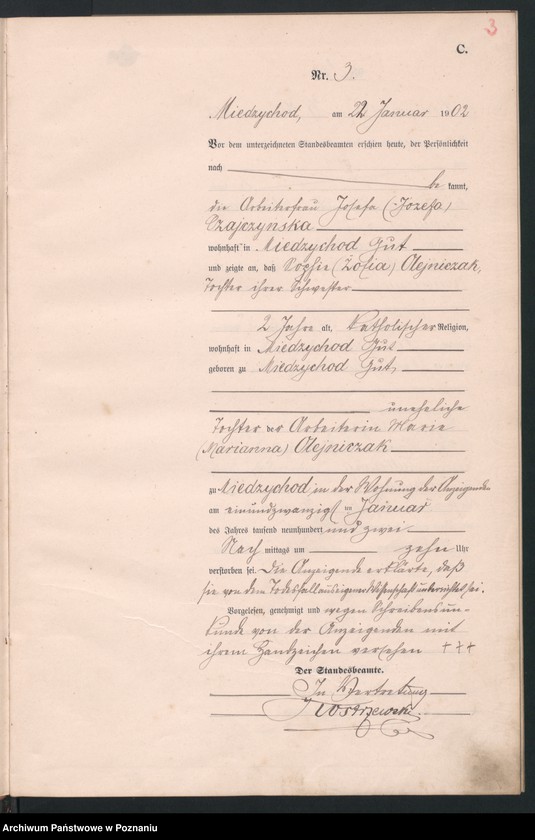 3
C.
Nr. 3.
Miedzychod, am 22 Januar 1902
Vor dem unterzeichneten Standesbeamten erschien heute, der Persönlichkeit
nach
be kannt,
die Arbeiterfrau Josefa (Józefa)
Czajczynska
wohnhaft in Miedzychod Gut
und zeigte an, daß Sophie (Zofia) Olejniczak,
Tochter ihrer Schwester
2 Jahre alt, katholischer Religion,
wohnhaft in Miedzychod Gut
geboren zu Miedzychod Gut,
uneheliche
Tochter der Arbeiterin Marie
(Marianna) Olejniczak
zu Miedzychod in der Wohnung der Anzeigenden
am einundzwanzigst en Januar
des Jahres tausend neunhundert und zwei
Nach mittags um zehn Uhr
verstorben sei. Die Anzeigende erklärte, daß
sie von dem Todesfall aus eigener Wissenschaft unterrichtet sei.
Vorgelesen, genehmigt und wegen Schreibensun-
kunde von der Anzeigenden mit
ihrem Handzeichen versehen +++
Der Standesbeamte.
In Vertretung
Archiwum Państwowe w Poznaniu